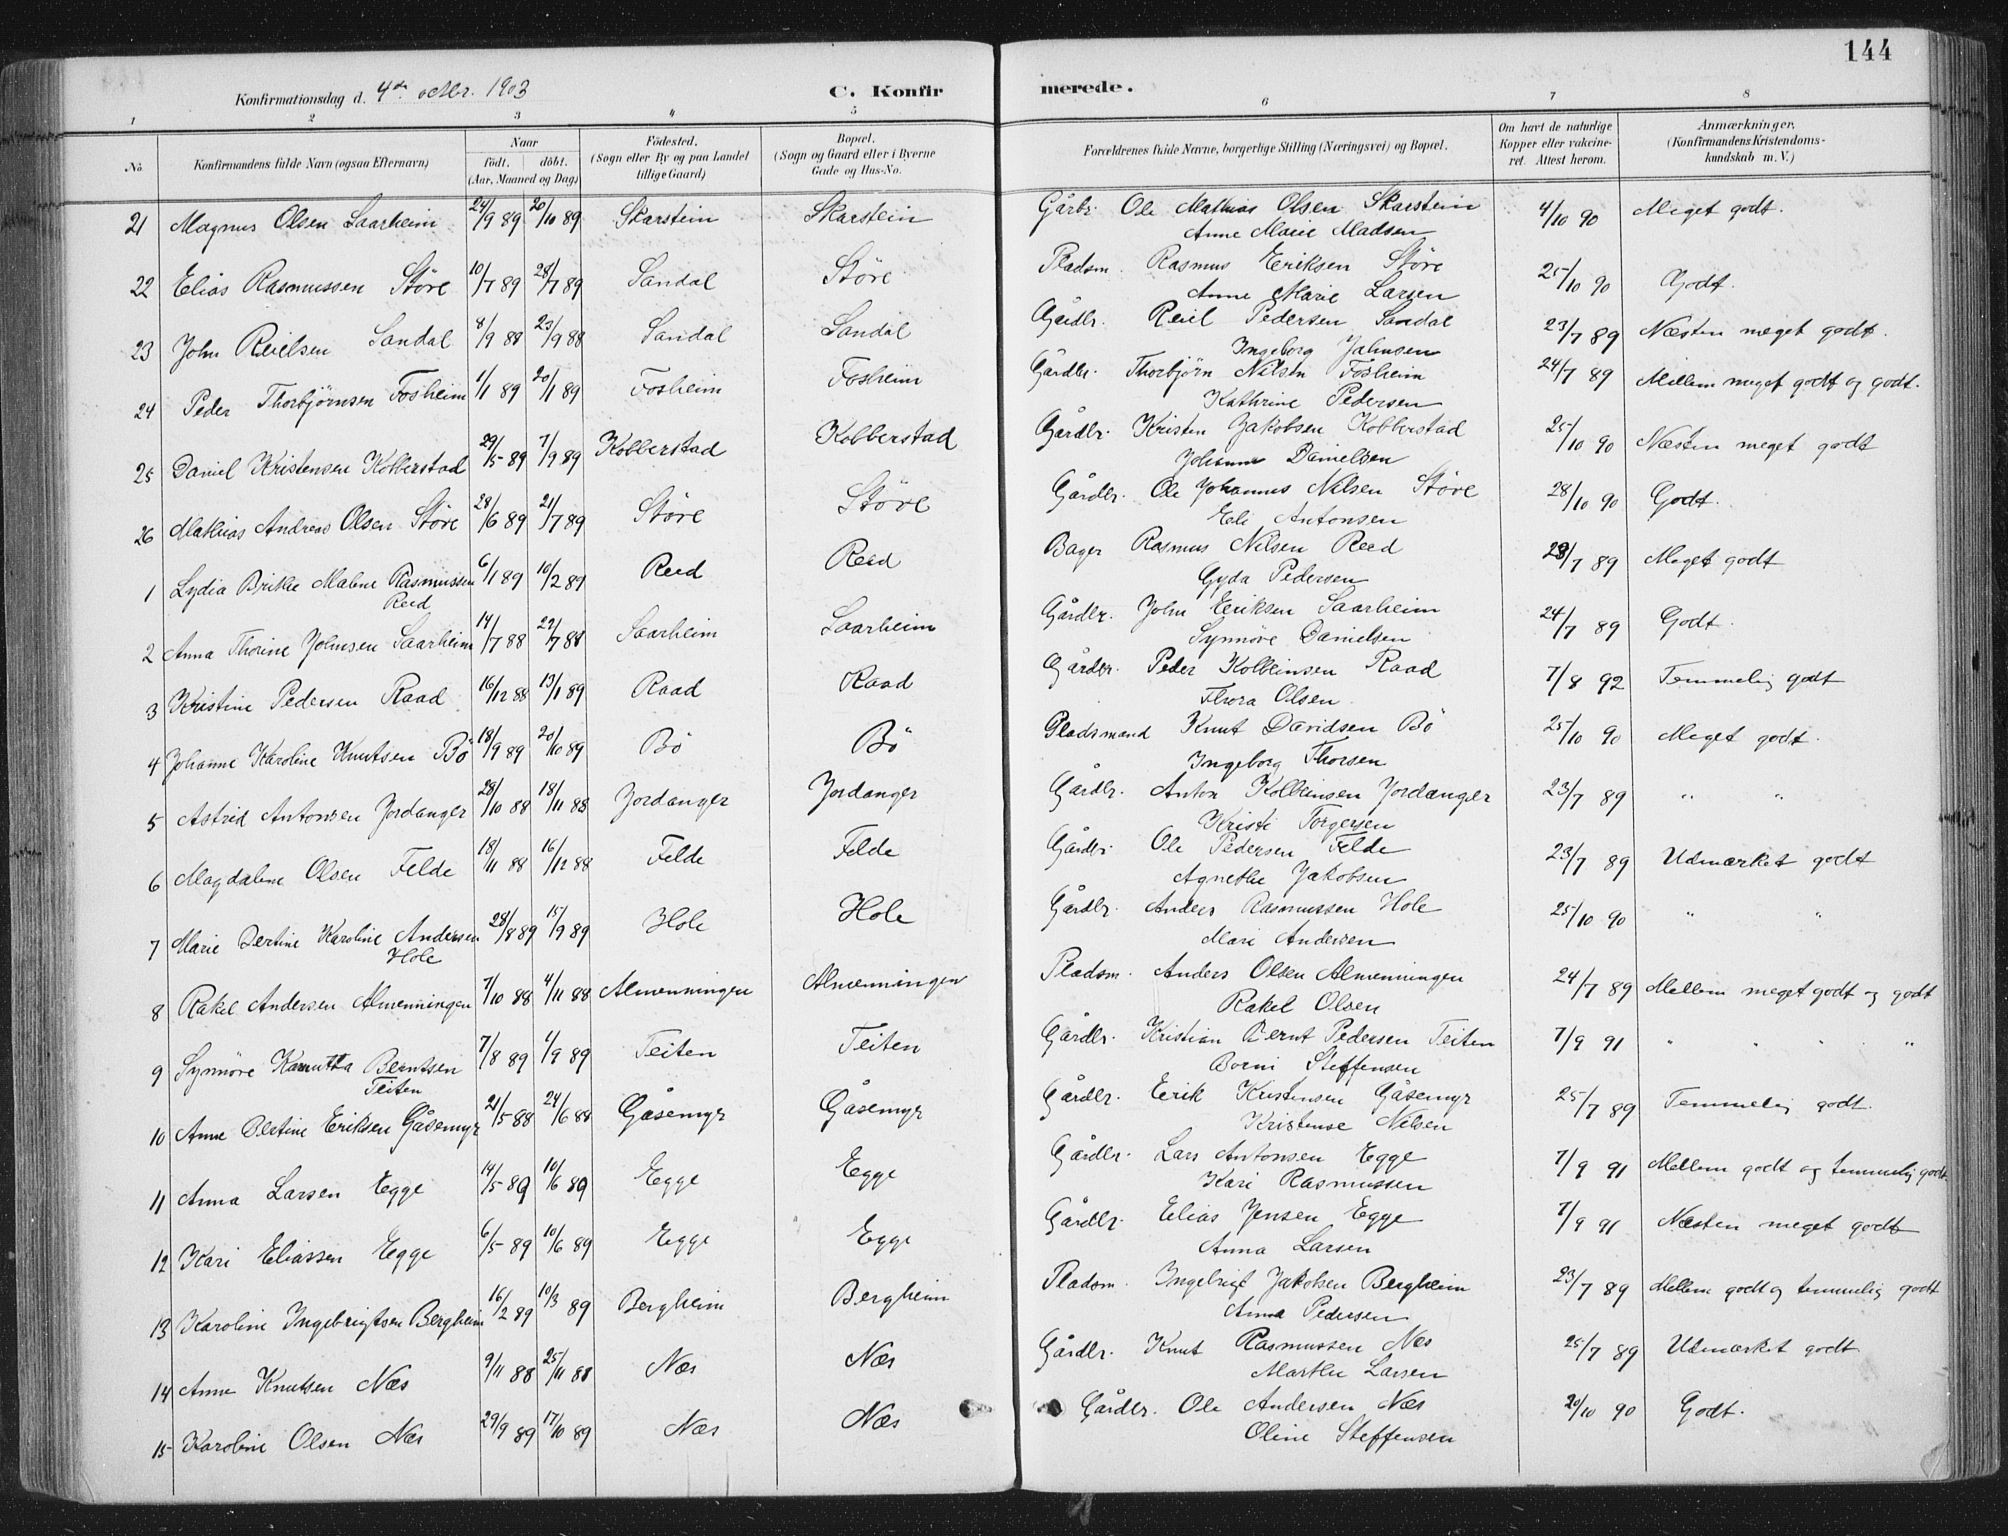 144
Konfirmationsdag d. 4de octbr. 1903 C. Konfirmerede.
1 2 3 4 5 6 7 8
No Konfirmandens fulde Navn (ogsaa Efternavn) Naar födt. döbt. (Aar, Maaned og Dag) Födested. (Sogn eller By og paa Landet tillige Gaard) Bopæl. (Sogn og Gaard eller i Byerne Gade og Hus-No. Forældrenes fulde Navne, borgerlige Stilling (Næringsvei) og Bopæl. Om havt de naturlige Kopper eller vakcineret. Attest herom. Anmærkninger. (Konfirmandens Kristendomskundskab m. V.)
21 Magnus Olsen Saarheim 24/9 89 20/10 89 Skarstein Skarstein Gårbr. Ole Mathias Olsen Skarstein 4/10 90 Meget godt.
Anne Marie Madsen
22 Elias Rasmussen Störe 10/7 89 28/7 89 Sandal Störe Pladsm. Rasmus Eriksen Störe 25/10 90 Godt.
Anne Marie Larsen
23 John Reielsen Sandal 8/9 88 23/9 88 Sandal Sandal Gårdbr. Reiel Pedersen Sandal 23/7 89 Næsten meget godt.
Ingeborg Johnsen
24 Peder Thorbjörnsen Fosheim 1/1 89 20/1 89 Fosheim Fosheim Gårdbr. Thorbjörn Nilsen Fosheim 24/7 89 Mellem meget godt og godt.
Kathrine Pedersen
25 Daniel Kristensen Kobberstad 29/5 89 7/9 89 Kobberstad Kobberstad Gårdbr. Kristen Jakobsen Kobberstad 25/10 90 Næsten meget godt
Johanne Danielsen
26 Mathias Andreas Olsen Störe 28/6 89 21/7 89 Störe Störe Gårdbr. Ole Johannes Nilsen Störe 28/10 90 Godt.
Eli Antonsen
1 Lydia Brikte Malene Rasmussen Reed 6/1 89 10/2 89 Reed Reed Bager Rasmus Nilsen Reed 23/7 89 Meget godt
Gyda Pedersen
2 Anna Thorine Johnsen Saarheim 14/7 88 22/7 88 Saarheim Saarheim Gårdbr. John Eriksen Saarheim 24/7 89 Godt.
Synnöve Danielsen
3 Kristine Pedersen Raad 16/12 88 13/1 89 Raad Raad Gårdbr. Peder Kolbeinsen Raad 7/8 92 Temmelig godt
Thora Olsen
4 Johanne Karoline Knutsen Bö 18/9 89 20/10 89 Bö Bö Pladsmand Knut Davidsen Bö 25/10 90 Meget godt.
Ingeborg Thorsen
5 Astrid Antonsen Jordanger 28/10 88 18/11 88 Jordanger Jordanger Gårdbr. Anton Kolbeinsen Jordanger 23/7 89 " "
Kristi Torgersen
6 Magdalene Olsen Felde 18/11 88 16/12 88 Felde Felde Gårdbr. Ole Pedersen Felde 23/7 89 Udmærket godt
Agnethe Jakobsen
7 Marie Bertine Karoline Andersen Hole 28/8 89 15/9 89 Hole Hole Gårdbr. Anders Rasmussen Hole 25/10 90 " "
Mari Andersen
8 Rakel Andersen Almenningen 7/10 88 4/11 88 Almenningen Almenningen Pladsm. Anders Olsen Almenningen 24/7 89 Mellem meget godt og godt
Rakel Olsen
9 Synnöve Berntsen Teiten 7/8 89 1/9 89 Teiten Teiten Gårdbr. Kristian Bernt Pedersen Teiten 7/9 91 " " " "
Borni Steffensen
10 Anne Bertine Eriksen Gåsemyr 21/5 88 24/6 88 Gåsemyr Gåsemyr Gårdbr. Erik Kristensen Gåsemyr 25/7 89 Temmelig godt.
Kristense Nilsen
11 Anna Larsen Egge 14/5 89 10/6 89 Egge Egge Gårdbr. Lars Antonsen Egge 7/9 91 Mellem godt og temmelig godt
Kari Rasmussen
12 Kari Eliassen Egge 6/5 89 10/6 89 Egge Egge Gårdbr. Elias Jensen Egge 7/9 91 Næsten meget godt
Anna Larsen
13 Karoline Ingebrigtsen Bergheim 16/2 89 10/3 89 Bergheim Bergheim Pladsm. Ingebrigt Jakobsen Bergheim 23/7 89 Mellem godt og temmelig godt
Anna Pedersen
14 Anne Knutsen Næs 9/11 88 25/11 88 Næs Næs Gårdbr. Knut Rasmussen Næs 25/7 89 Udmærket godt
Marthe Larsen
15 Karoline Olsen Næs 29/9 89 17/10 89 Næs Næs Gårdbr. Ole Andersen Næs 20/10 90 Godt.
Oline Steffensen